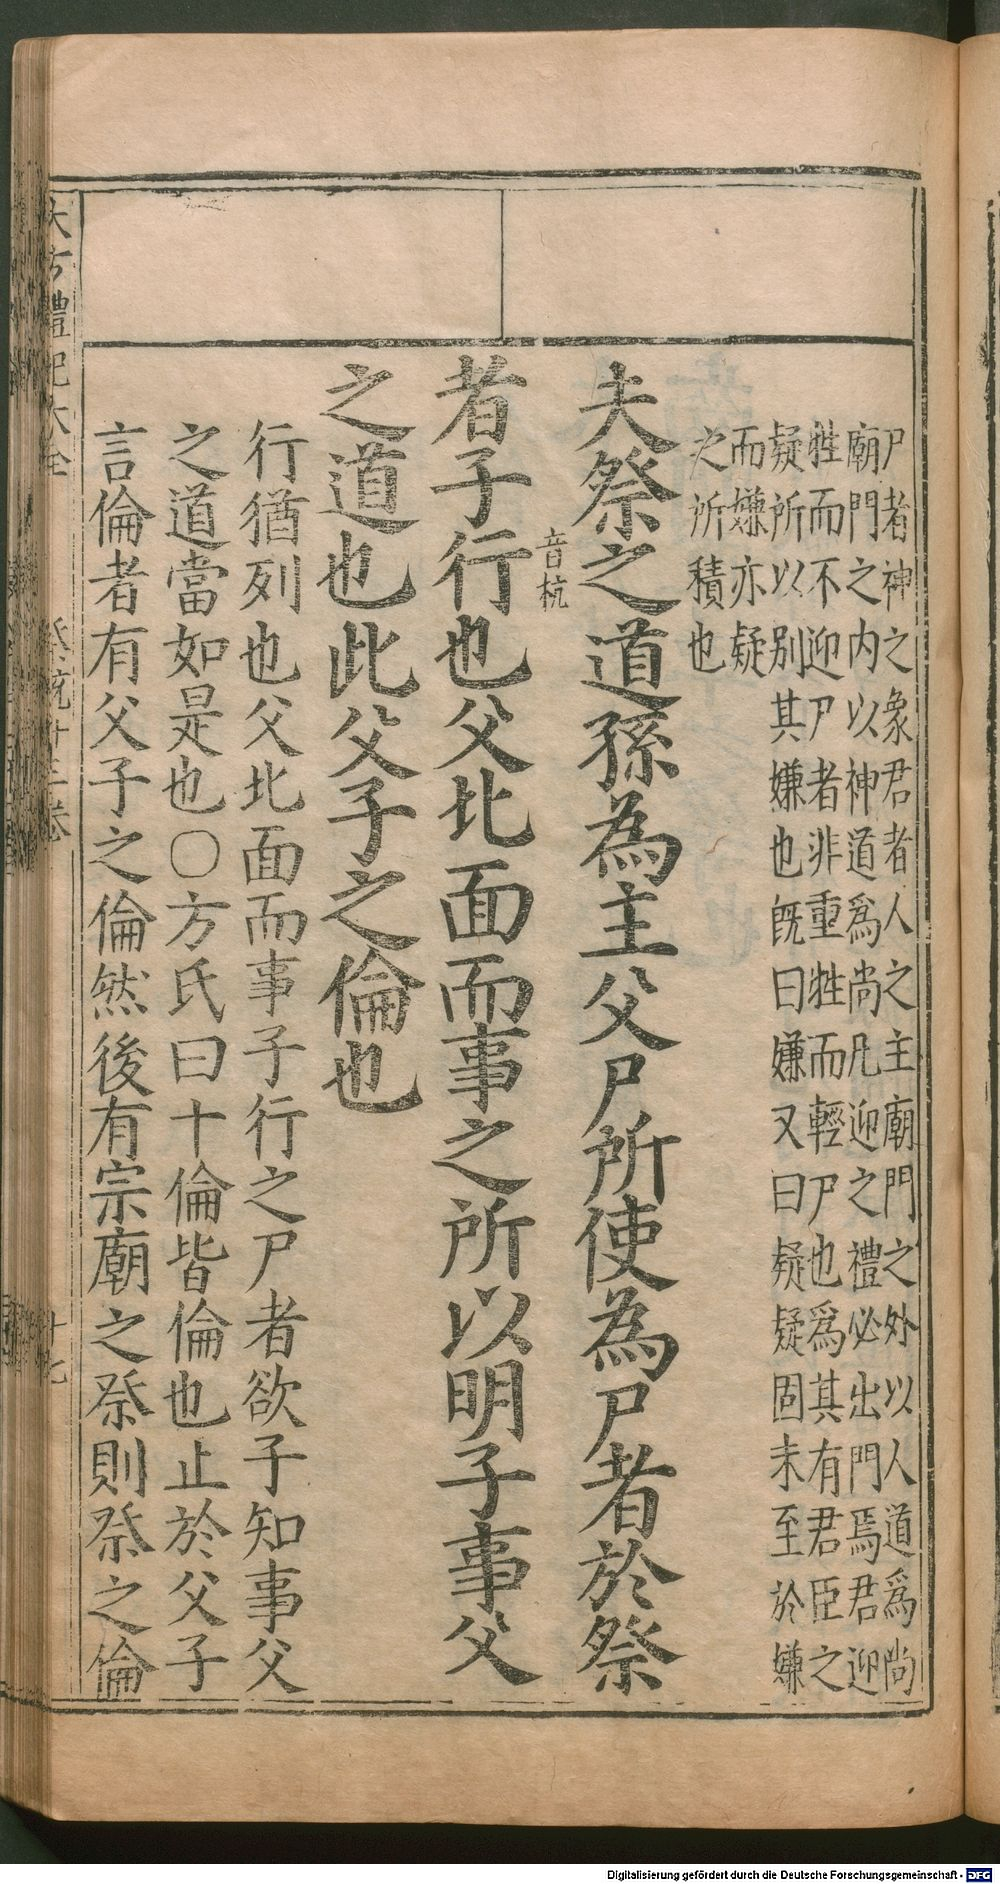 尸者神之象君者人之主廟門之外以人道爲尚
廟門之内以神道爲尚凡迎之禮必出門焉君迎
牲而不迎尸者非重牲而輕尸也爲其有君臣之
疑所以别其嫌也既曰嫌又曰疑疑固未至於嫌
而嫌亦疑
之所積也
夫祭之道孫為主父尸所使為尸者於祭
音杭
者子行也父北面而事之所以明子事父
之道也此父子之倫也
行猶列也父北面而事子行之尸者欲子知事父
之道當如是也○方氏曰十倫皆倫也止於父子
言倫者有父子之倫然後有宗廟之祭則祭之倫
大方禮記大全 祭統十三卷 十七
Digitalisierung gefördert durch die Deutsche Forschungsgemeinschaft - DFG